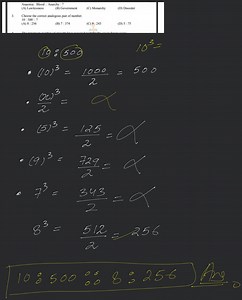 Anarchist : Blood : Anarchy : ?
(A) Lawlessness (B) Government (C) Monarchy (D) Disorder
2. Choose the correct analogous pair of number.
10 : 500 : ?
10 : 500
10³ =
• (10)³ = 1000/2 = 500
• = α
• (5)³ = 125/2 = α
• (9)³ = 729/2 = α
• 7³ = 343/2 = α
8³ = 512/2 = 256
10 : 500 :: 8 : 256 Ans